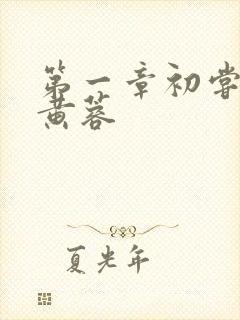 第一章初尝
黄蓉
夏光年